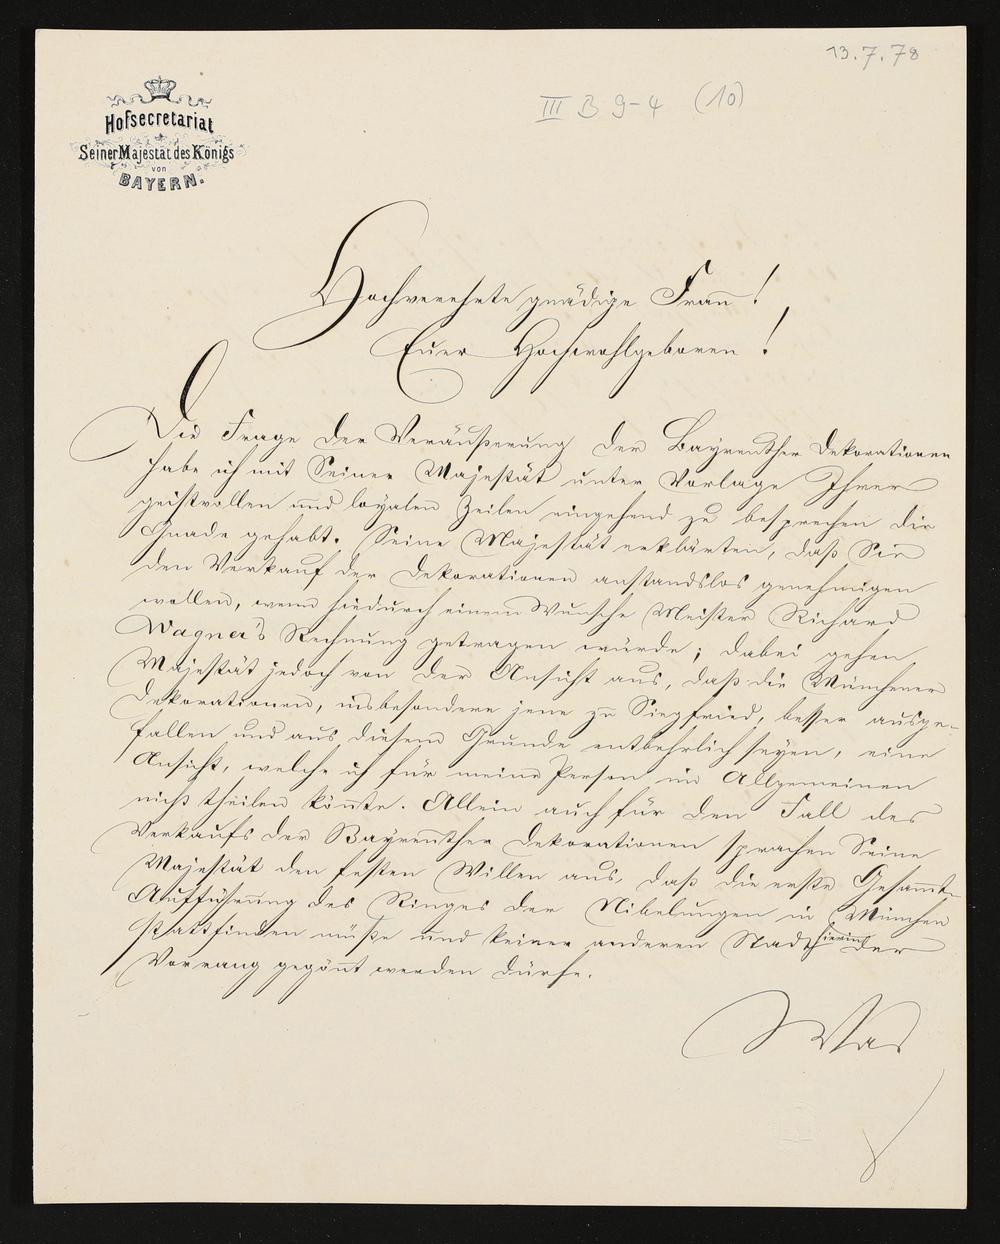 13.7.78
III B 9-4 (10)
Hofsecretariat
Seiner Majestät des Königs
von
BAYERN.
Hochverehrte gnädige Frau!
Euer Hochwohlgeboren!
Die Frage der Veräußerung der Bayreuther Dekorationen
habe ich mit Seiner Majestät unter Vorlage Ihrer
geistvollen und loyalen Zeilen eingehend zu besprechen die
Gnade gehabt. Seine Majestät erklärten, daß Sie
den Verkauf der Dekorationen anstandslos genehmigen
wollen, wenn hiedurch einem Wunsche Meister Richard
Wagner's Rechnung getragen würde; dabei gehen
Majestät jedoch von der Ansicht aus, daß die Münchener
Dekorationen, insbesondere jene zu Siegfried, besser ausge-
fallen und aus diesem Grunde entbehrlich seyen, eine
Ansicht, welche ich für meine Person im Allgemeinen
nicht theilen könnte. Allein auch für den Fall des
Verkaufs der Bayreuther Dekorationen sprachen Seine
Majestät den festen Willen aus, daß die erste Gesammt-
Aufführung des Ringes der Nibelungen in München
stattfinden müße und keiner anderen Stadt hierin der
Vorrang gegönnt werden dürfe.
Was